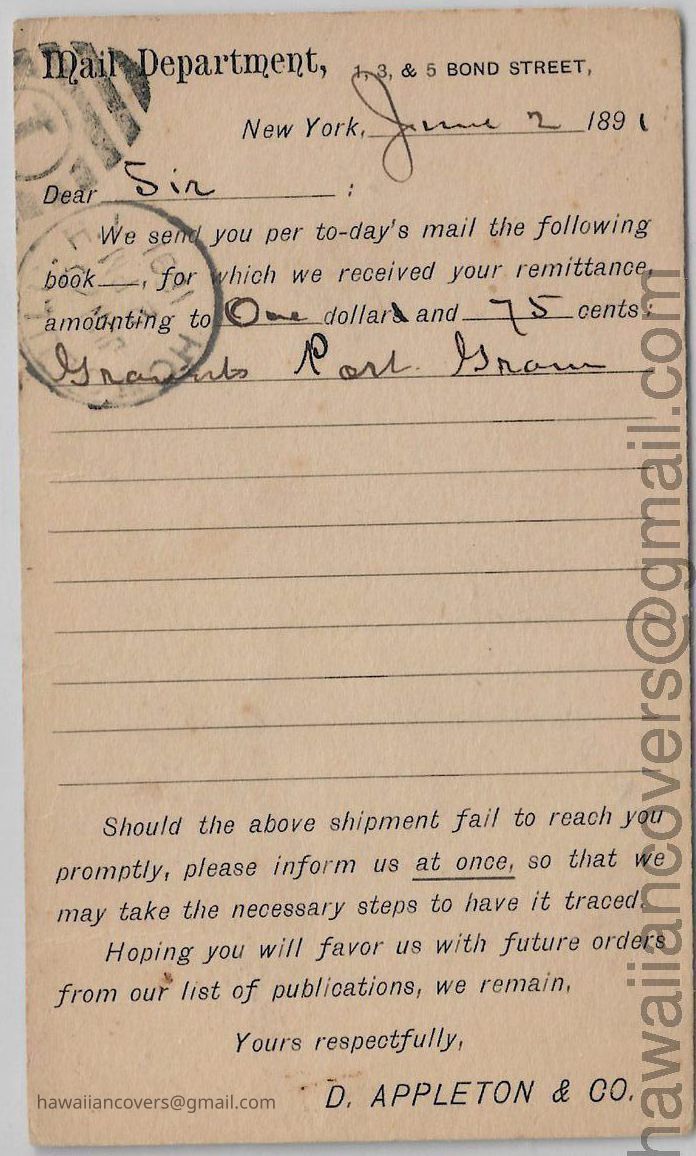 Mail Department, 1, 3, & 5 BOND STREET,
New York, June 2 1891
Dear Sir :
We send you per to-day's mail the following
book , for which we received your remittance,
amounting to One dollar and 75 cents:
Port. Gram
Should the above shipment fail to reach you
promptly, please inform us at once, so that we
may take the necessary steps to have it traced.
Hoping you will favor us with future orders
from our list of publications, we remain,
Yours respectfully,
D. APPLETON & CO.
hawaiiancovers@gmail.com
hawaiiancovers@gmail.com